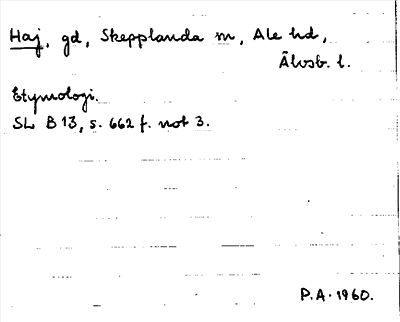 Haj, gd, Skepplanda sn, Ale hd,
Älvsb. l.
Etymologi.
SL B 13, s. 662 f. not 3.
P.A. 1960.